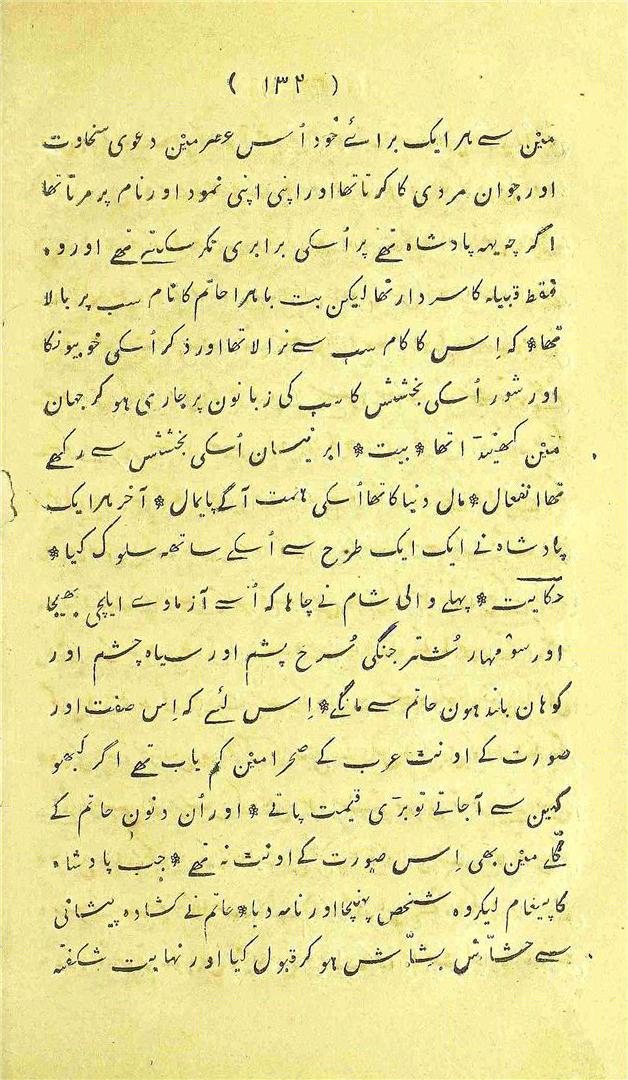 ( ۱۳۲ )
مین سے ہر ایک برائے خود اُس عصر مین دعوی سخاوت
اور جوان مردی کا کرتا تھا اور اپنی اپنی نمود اور نام پر مرتا تھا
اگرچہ یہہ پادشاہ تھے پر اُسکی برابری نکر سکتے تھے اور وہ
فقط قبیلہ کا سردار تھا لیکن بت باہرا حاتم کا نام سب پر بالا
تھا * کہ اِس کا کام سب سے نرالا تھا اور ذکر اُسکی خوبیونکا
اور شور اُسکی بخشش کا سب کی زبانون پر جاری ہو کر جہان
مین کھینڈ اتھا * بیت * ابر نیسان اُسکی بخشش سے رکھے
تھا انفعال * مال دنیا کا تھا اُسکی ہمت آگے پایمال * آخر ہر ایک
پادشاہ نے ایک ایک طرح سے اُسکے ساتھہ سلوک کیا *
حکایت * پہلے والی شام نے چاہا کہ اُسے آزماوے ایلچی بھیجا
اور سو مہار شُتر جنگی سُرخ پشم اور سیاہ چشم اور
کوہان بلند ہون حاتم سے مانگے * اِس لئے کہ اِس صفت اور
صورت کے اونٹ عرب کے صحرا مین کم یاب تھے اگر کبھو
کہین سے آجاتے تو بڑی قیمت پاتے * اور اُن دنون حاتم کے
گلّے مین بھی اِس صورت کے اونٹ نہ تھے * جب پادشاہ
کا پیغام لیکر وہ شخص پہنچا اور نامہ دیا * حاتم نے کشادہ پیشانی
سے حشّاش بشّاش ہو کر قبول کیا اور نہایت شگفتہ